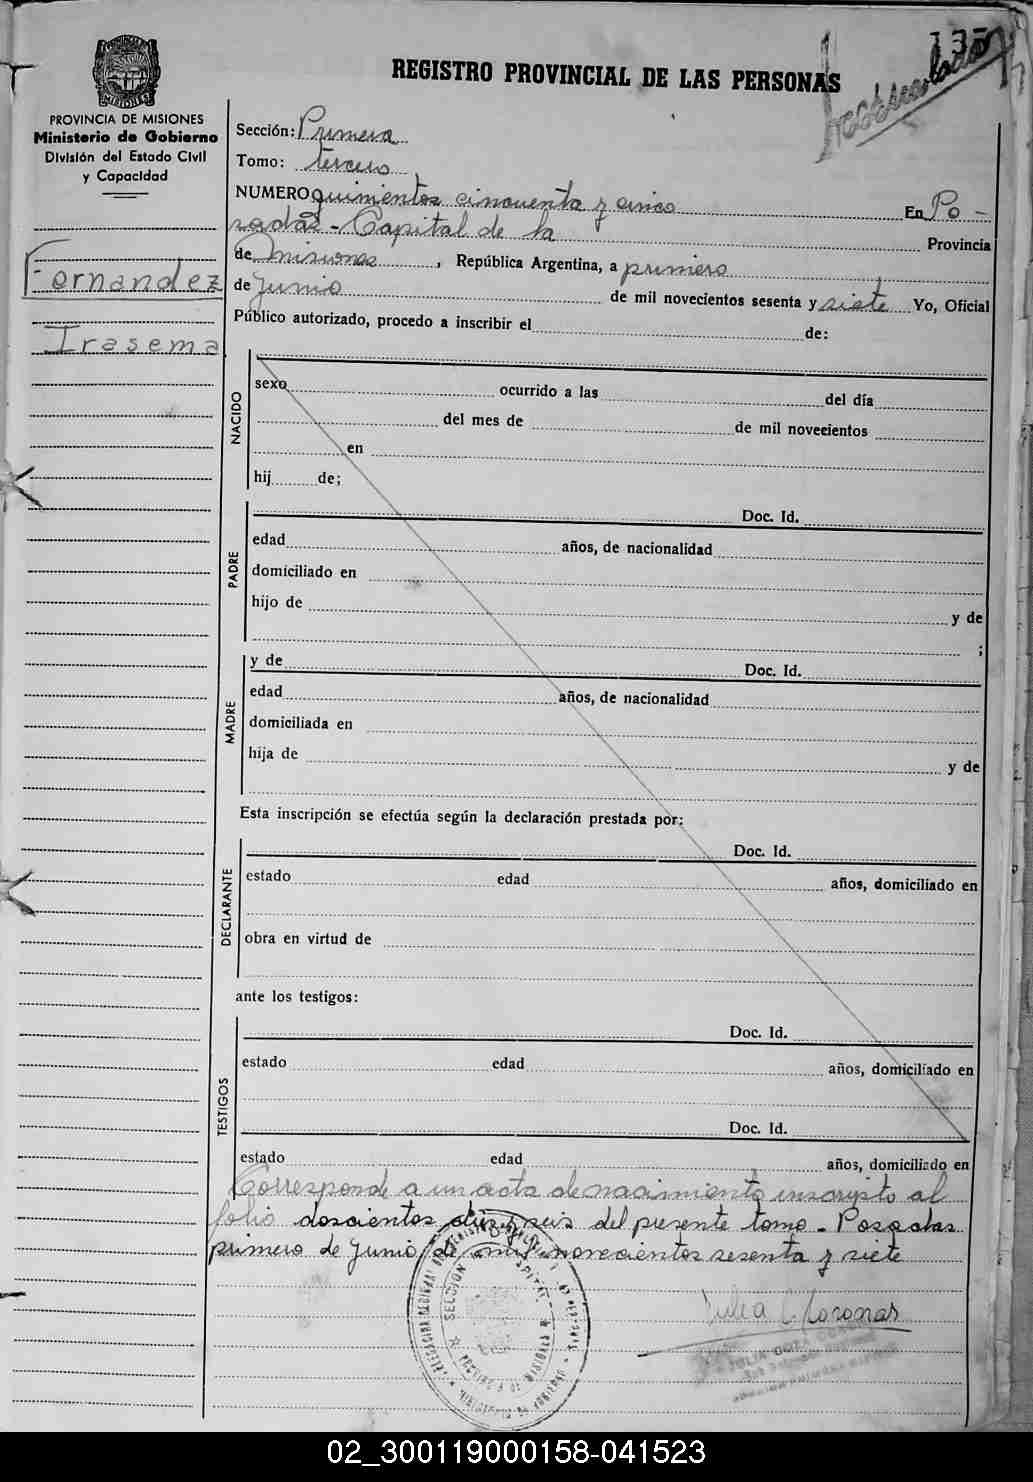 REGISTRO PROVINCIAL DE LAS PERSONAS
PROVINCIA DE MISIONES
Ministerio de Gobierno
División del Estado Civil
y Capacidad
Fernandez
Irasema
Sección: Primera
Tomo: tercero
NUMERO quinientos cincuenta y cinco En Po-
sadas - Capital de la Provincia
de Misiones, República Argentina, a primero
de Junio de mil novecientos sesenta y siete Yo, Oficial
Público autorizado, procedo a inscribir el de:
NACIDO
sexo ocurrido a las del día
del mes de de mil novecientos
en
hij de;
PADRE
Doc. Id.
edad años, de nacionalidad
domiciliado en
hijo de y de
;
MADRE
y de Doc. Id.
edad años, de nacionalidad
domiciliada en
hija de y de
Esta inscripción se efectúa según la declaración prestada por:
DECLARANTE
Doc. Id.
estado edad años, domiciliado en
obra en virtud de
ante los testigos:
TESTIGOS
Doc. Id.
estado edad años, domiciliado en
Doc. Id.
estado edad años, domiciliado en
Corresponde a un acta de nacimiento inscripto al
folio doscientos diez y seis del presente tomo - Posadas
primero de Junio de mil novecientos sesenta y siete
Julia C. Coronas
02_300119000158-041523